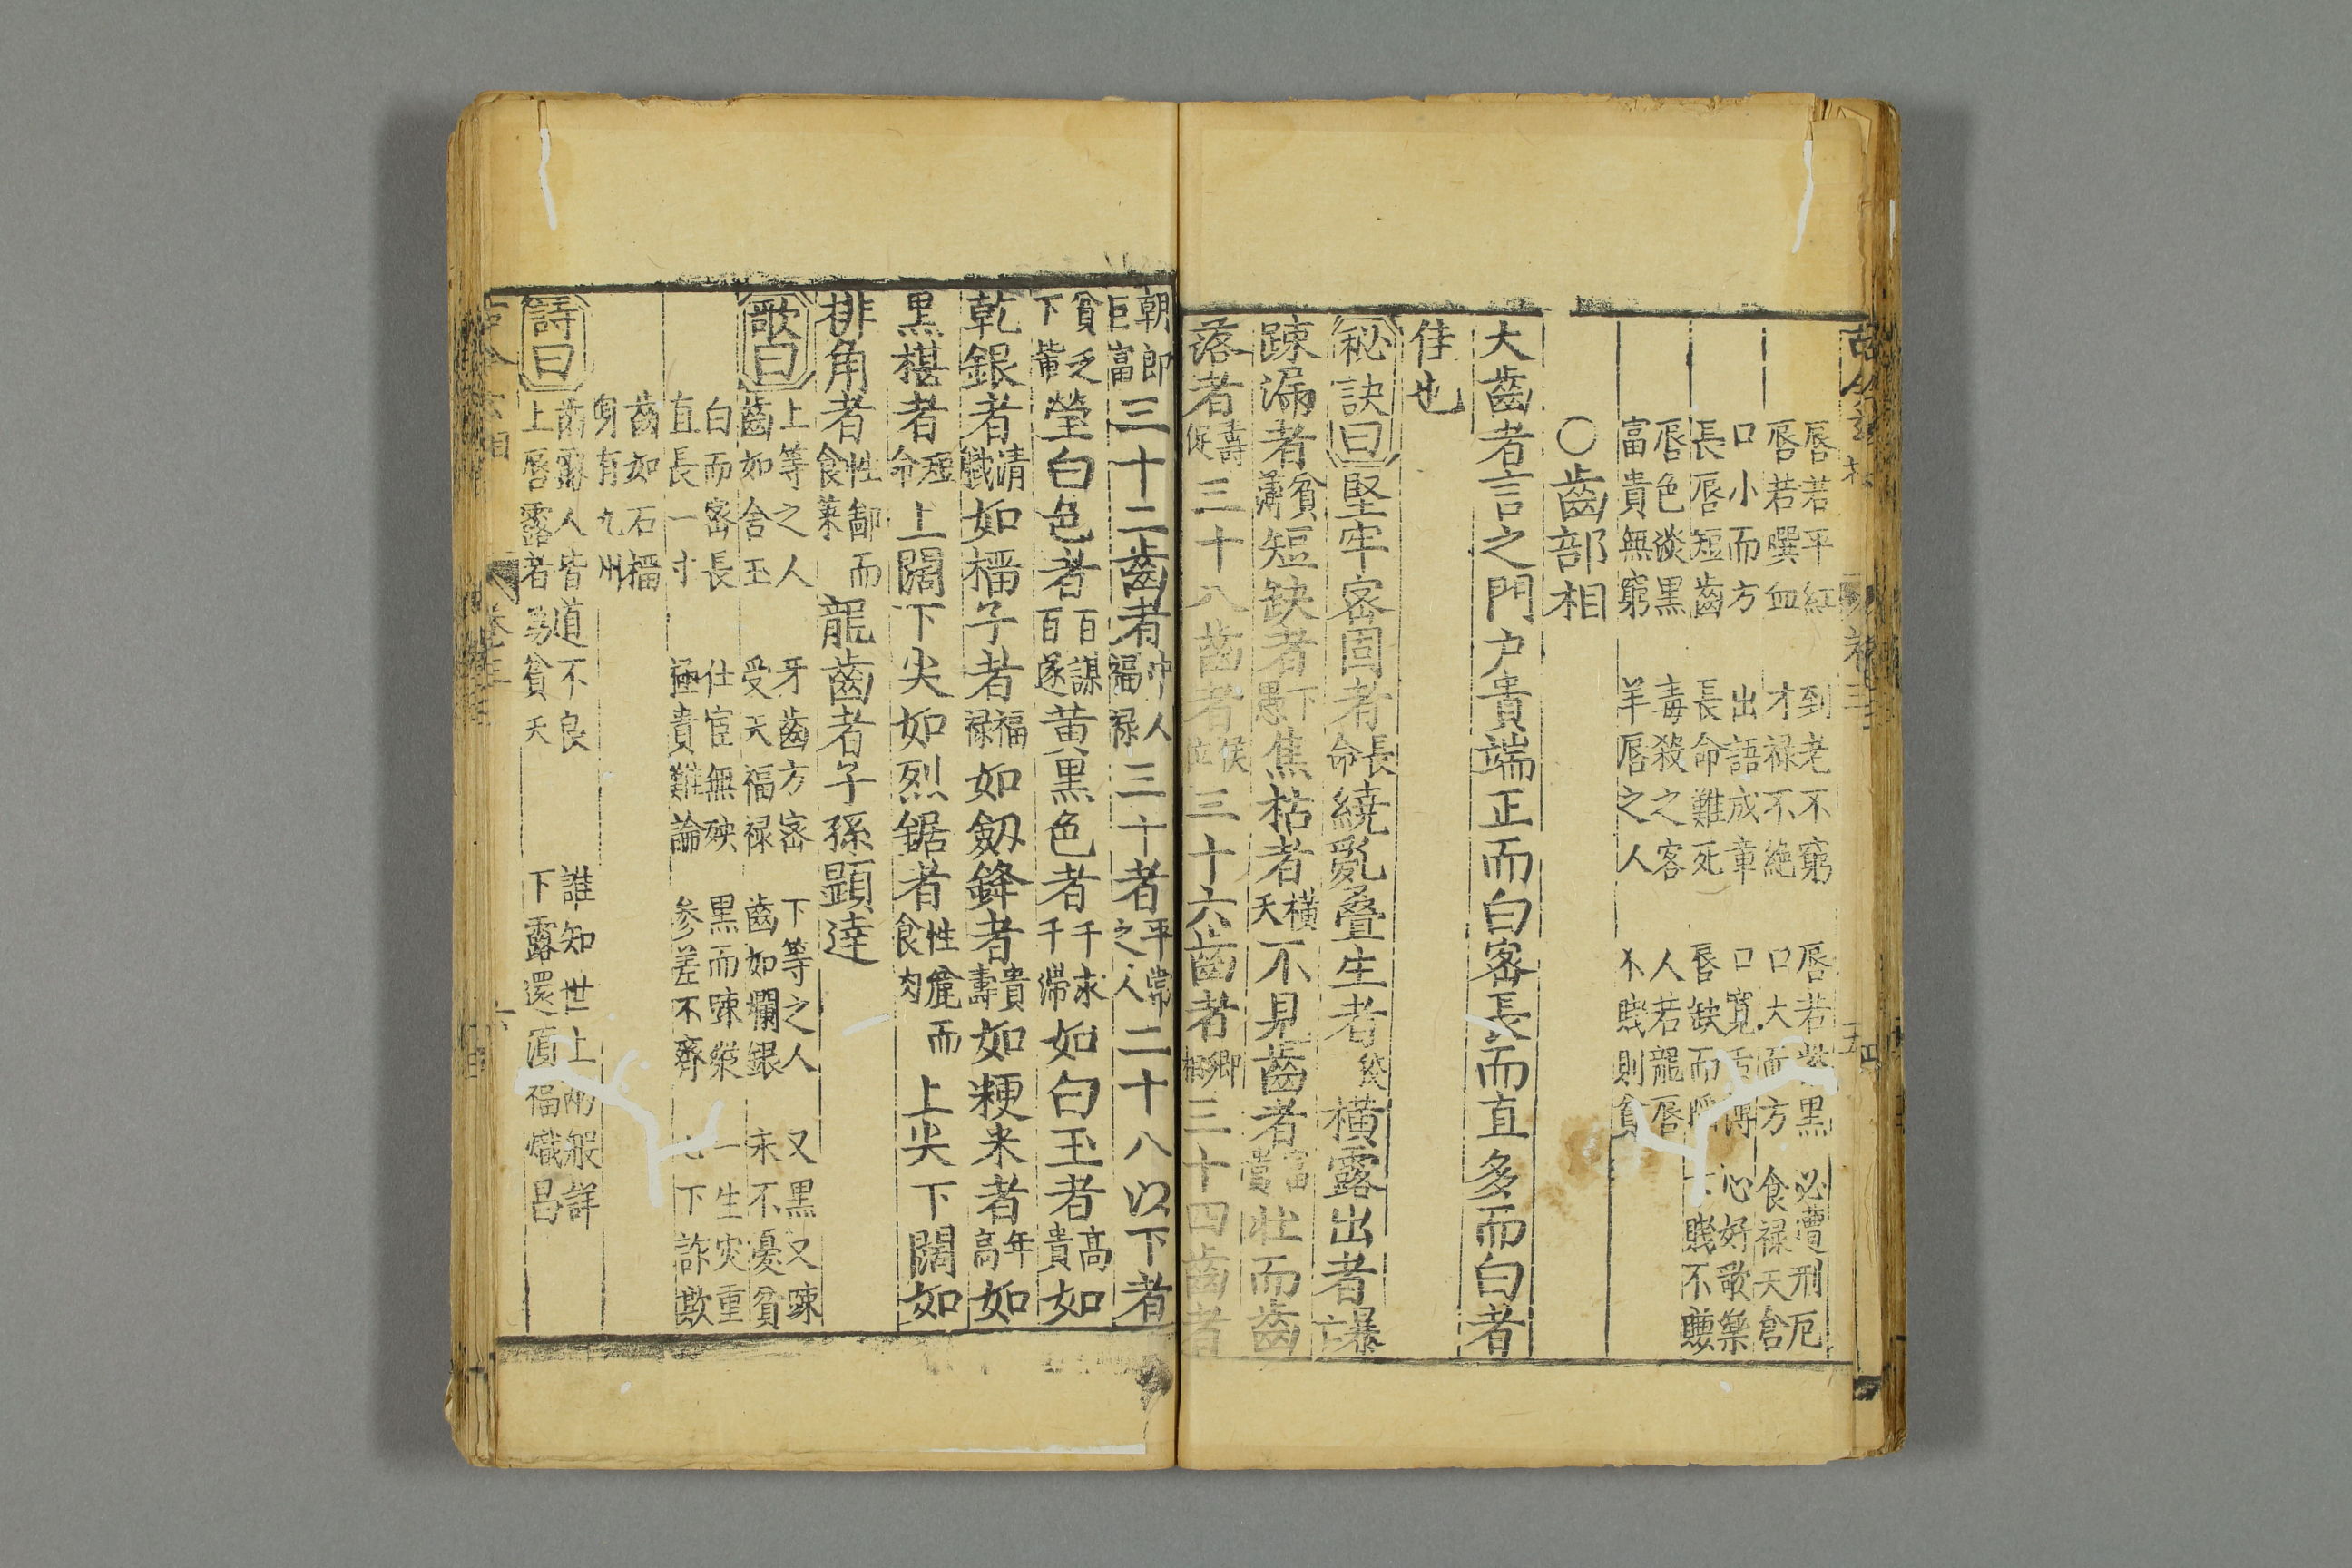 唇若平紅　到老不窮　唇若紫黒　必遭刑厄
唇若噀血　才禄不絶　口大而方　食禄天倉
口小而方　出語成章　口寛舌薄　心好歌樂
長唇短齒　長命難死　唇缺而　下賤不
唇色淡黒　毒殺之客　人若龍唇
富貴無窮　羊唇之人　不賤則貧
〇齒部相
大齒者言之門户貴端正而白密長而直多而白者
佳也
秘訣曰堅牢密固者長命繞亂叠生者 横露出者暴亡
踈漏者貧薄短缺者下愚焦枯者横夭不見齒者富貴壮而齒
落者壽促三十八齒者侯三十六齒者卿相三十四齒者
朝郎巨富三十二齒者中人福禄三十者平常之人二十八以下者
貧乏下軰瑩白色者百謀百遂黄黒色者千求千滞如白玉者高貴如
乾銀者清職如榴子者福禄如劔鋒者貴壽如粳米者年高如
黒椹者短命上闊下尖如烈鋸者性麄而食肉上尖下闊如
排角者性鄙而食菜龍齒者子孫顕達
歌曰　上等之人　牙齒方密　下等之人　又黒又踈
齒如含玉　受天福禄　齒如爛銀　末不憂貧
白而密長　仕宦無殃　黒而踈　一生灾重
直長一寸　極貴難論　參差不齊　下詐欺
齒如石榴
身有九州
詩曰　齒露人皆道不良　誰知世上兩般詳
上唇露者多貧夭　下露還須福熾昌